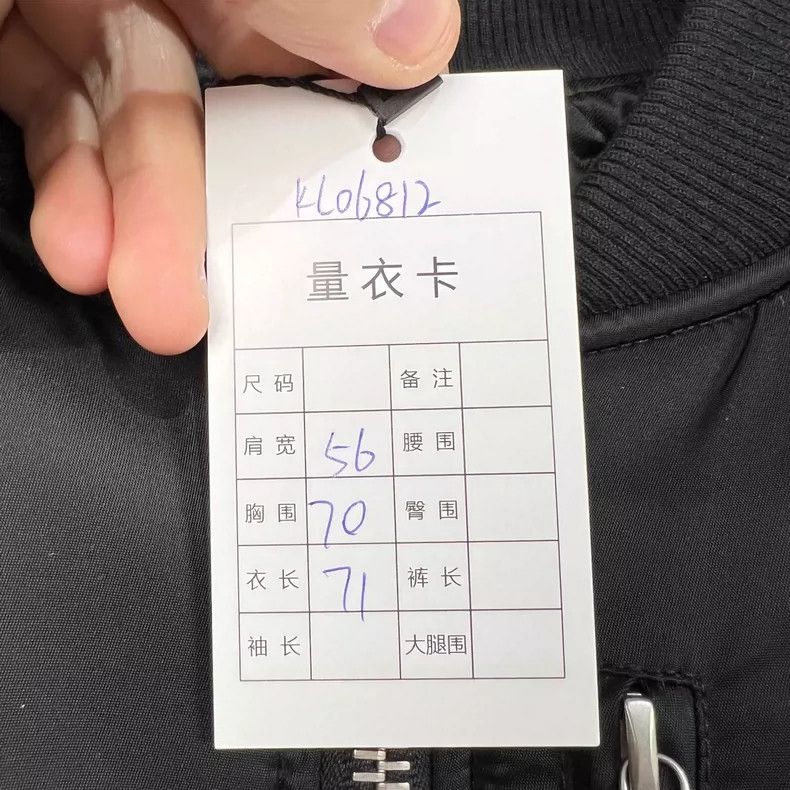 KL06812
量衣卡
尺码 备注
肩宽 56 腰围
胸围 70 臀围
衣长 71 裤长
袖长 大腿围